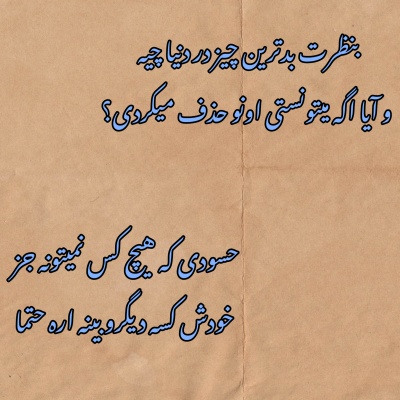 بنظرت بدترین چیز در دنیا چیه
و آیا اگه میتونستی اونو حذف میکردی؟
حسودی که هیچ کس نمیتونه جز
خودش کسه دیگرو بینه اره حتما